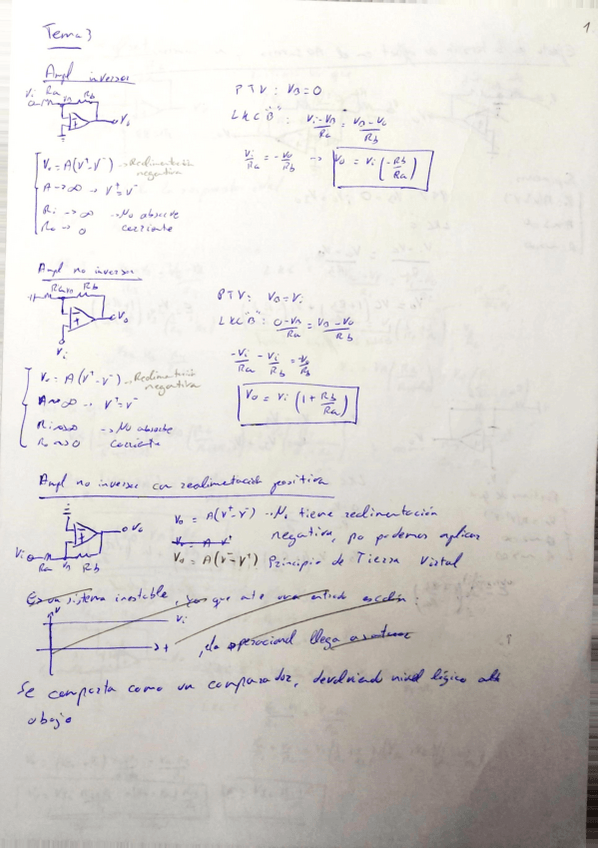 1
Tema 3
Ampl inversor
Vi Ra VB Rb
Vo
PTV: VB=0
LKC "B": Vi-VB/Ra = VB-Vo/Rb
Vi/Ra = -Vo/Rb → Vo = Vi (-Rb/Ra)
Vo = A(V⁺-V⁻) → Realimentación negativa
A→∞ → V⁺=V⁻
Ri → ∞ → No absorve
Ro → 0 corriente
Ampl no inversor
Ra VB Rb
Vo
Vi
PTV: VB=Vi
LKC "B": 0-VB/Ra = VB-Vo/Rb
-Vi/Ra - Vi/Rb = -Vo/Rb
Vo = Vi (1+Rb/Ra)
Vo = A(V⁺-V⁻) → Realimentación negativa
A→∞ → V⁺=V⁻
Ri→∞ → No absorve
Ro→0 corriente
Ampl no inversor con realimentación positiva
Vo
Vi Ra VB Rb
Vo = A(V⁺-V⁻) → No tiene realimentación
negativa, no podemos aplicar
Vo = A(V⁻-V⁺) Principio de Tierra Virtual
Es un sistema inestable, ya que ante una entrada escalón
V
Vi
t
, el operacional llega a saturar
Se comporta como un comparador, devolviendo nivel lógico alto
o bajo